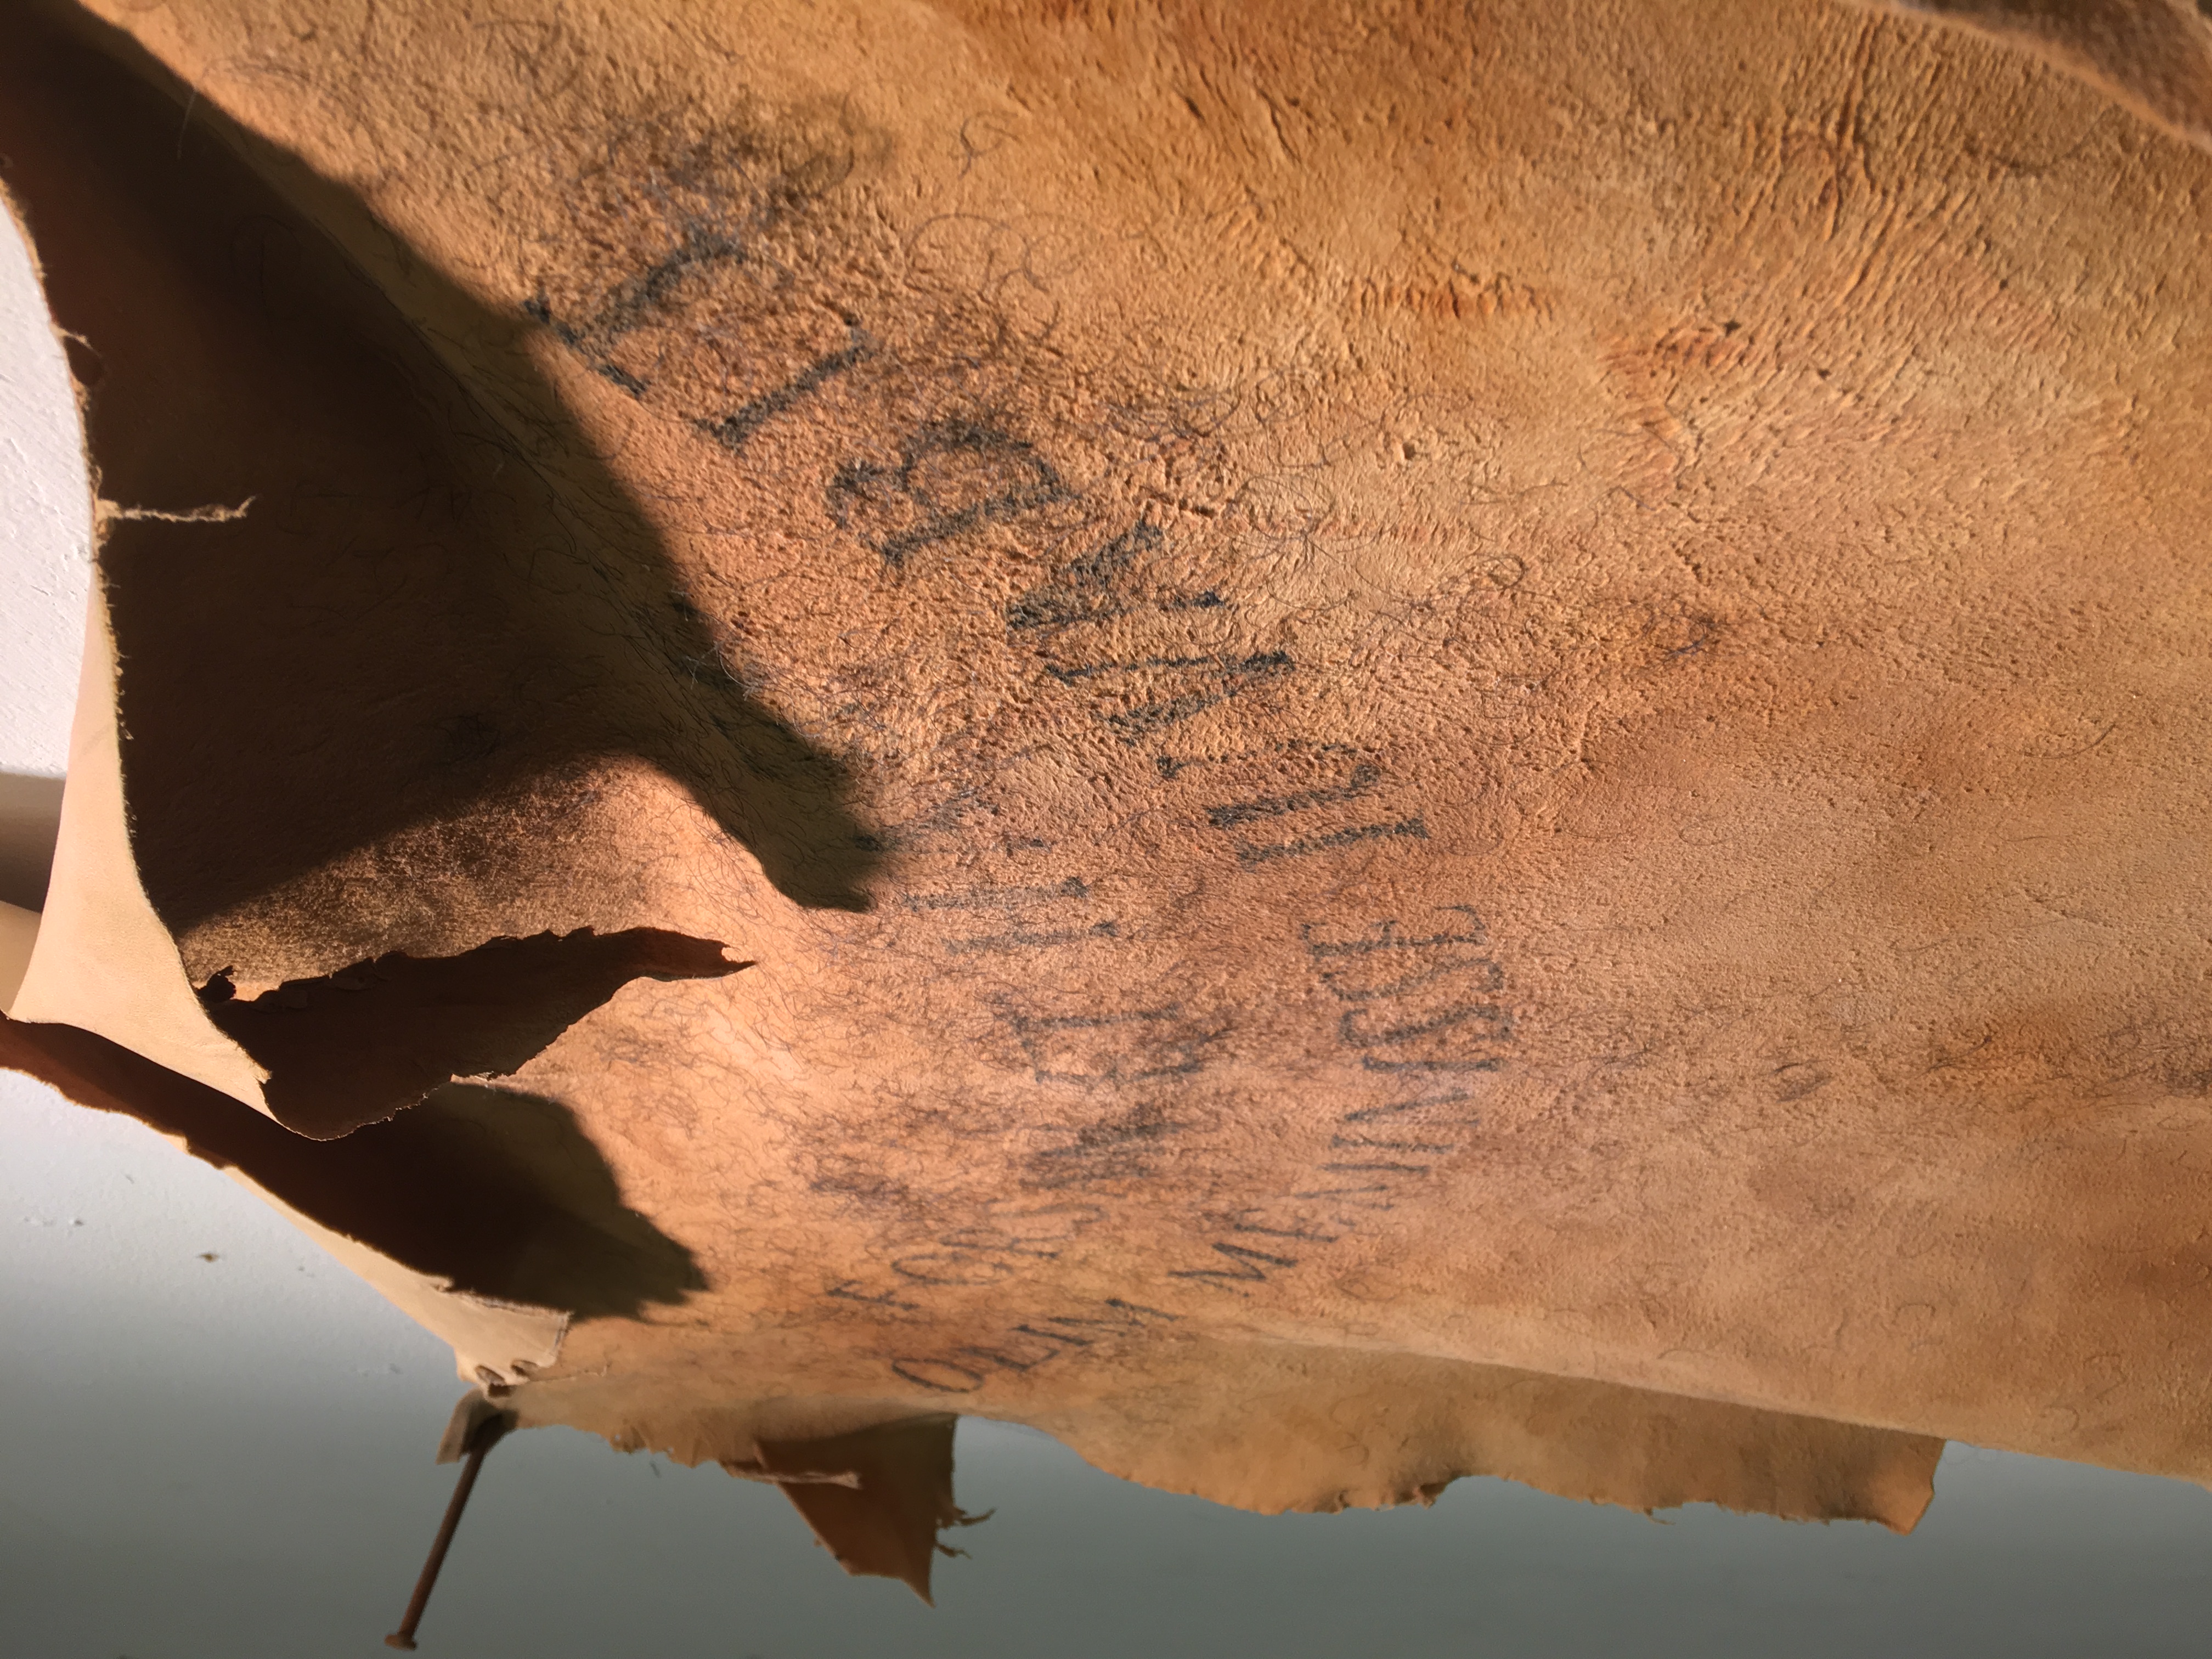 FORSAN ET
OLIM MEMINISSE IUVABIT